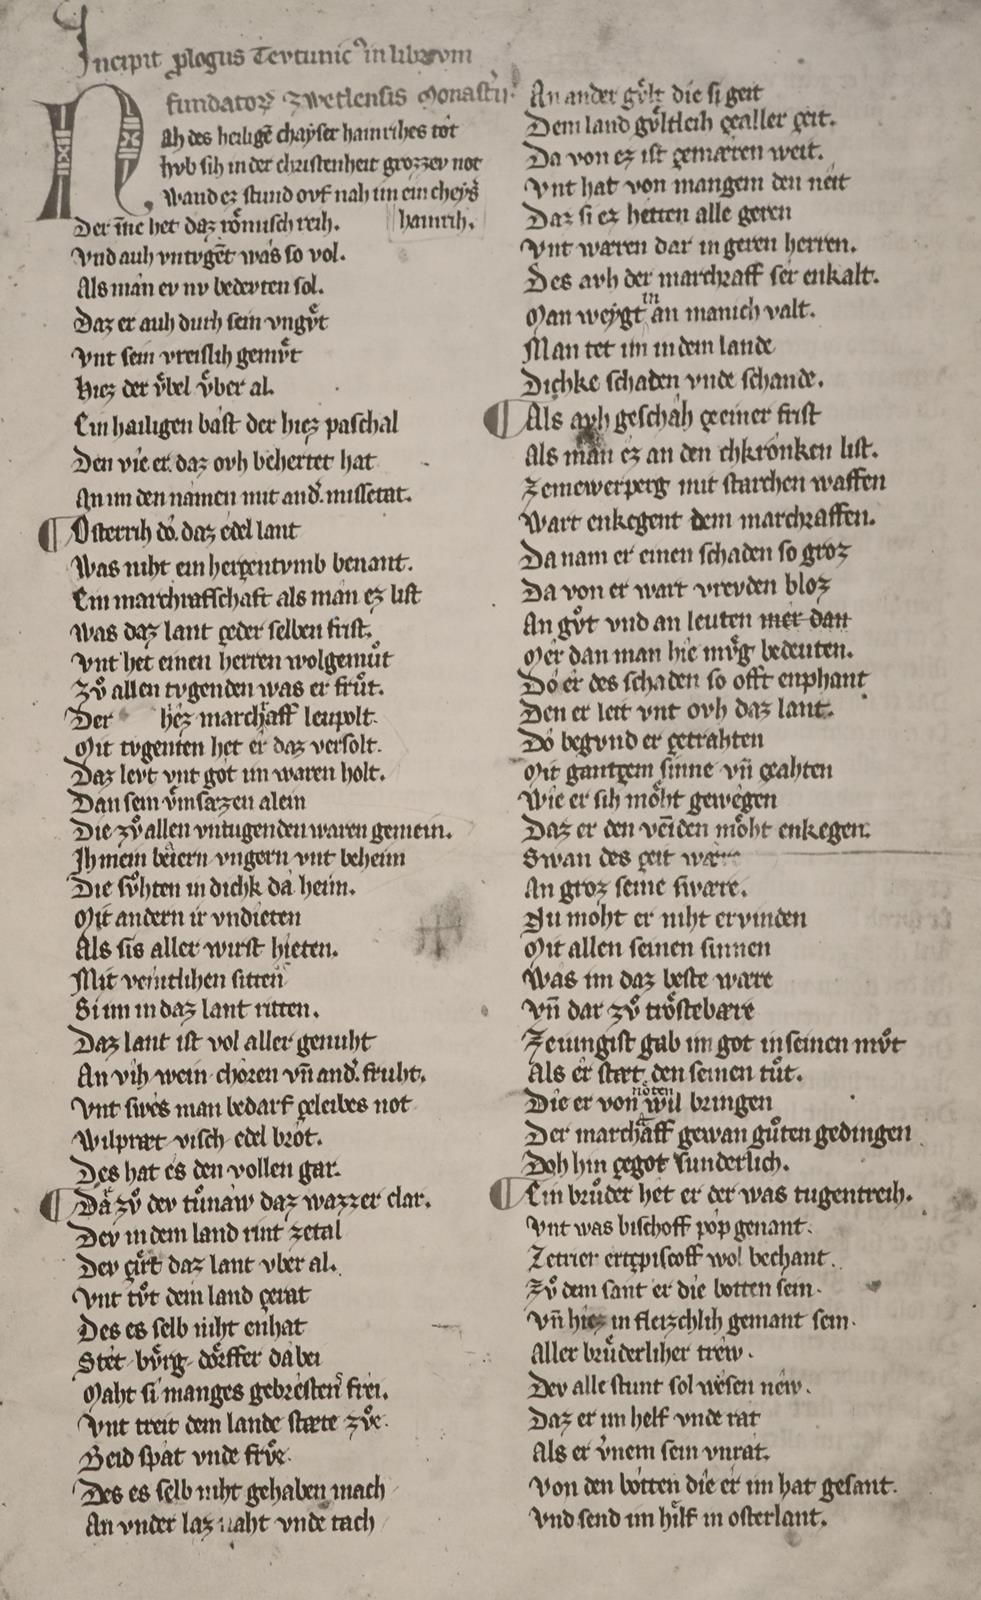 Incipit plogus Tevtunic᷒ in librvm
fundatoꝝ Zwetlensis Monastii.
Nah des heilige᷑ chayser hainrihes tot
hvb sih in der christenheit grozzev not
Wand ez stund ovf nah im ein cheys᷑
hainrih.
Der i͞ne het daz roͤmisch reih.
Vnd auh vntvge᷑t was so vol.
Als man ev nv bedevten sol.
Daz er auh durh sein vngvͤt
Vnt sein vreislih gemvͤt
Hiez der vͤbel vͤber al.
Ein hailigen bast der hiez paschal
Den vie er. daz ovh behertet hat
An im den namen mit and᷑. missetat.
¶ Osterrih do. daz edel lant
Was niht ein herçentvmb benant.
Ein marchraffschaft als man ez list
was daz lant çeder selben frist.
Vnt het einen herren wolgemuͤt
Zvͦ allen tvgenden was er fruͤt.
Der hez marchᵃff leupolt.
Mit tvgenten het er daz versolt.
Daz levt vnt got im waren holt.
Dan sein vmsæzen alein
Die zvͦ allen vntugenden waren gemein.
Ih mein beiern vngern vnt beheim
Die svͦhten in dichk da heim.
Mit andern ir vndieten
Als sis aller wirst hieten.
Mit veintlihen sitten
Si im in daz lant ritten.
Daz lant ist vol aller genuht
An vih wein choren vn̄ and᷑. fruht.
Vnt swes man bedarf çeleibes not
Wilpræt visch edel brot.
Des hat es den vollen gar.
¶ Da zvͦ dev tuͦnaw daz wazzer clar.
Dev in dem land rint zetal
Dev çirt daz lant vber al.
Vnt tvͦt dem land çerat
Des es selb niht enhat
Stet bvͤrg doͤrffer da bei
Maht si manges gebresten frei.
Vnt treit dem lande stæte zvͦe.
Beid spat vnde frvͤe.
Des es selb niht gehaben mach
An vnder laz naht vnde tach
An ander gvͤlt die si geit
Dem land gvͤltleih çealler çeit.
Da von ez ist gemæren weit.
Vnt hat von mangem den neit
Daz si ez hetten alle geren
Vnt wæren dar in geren herren.
Des avh der marchraff ser enkalt.
Man weygt im an manich valt.
Man tet im in dem lande
Dichke schaden vnde schande.
¶ Als avh geschah çeeiner frist
Als man ez an den chkroniken list.
Zemewerperg mit starchen waffen
Wart enkegent dem marchraffen.
Da nam er einen schaden so groz
Da von er wart vrevden bloz
An gvͦt vnd an leuten mer dan
Mer dan man hie mvͤg bedeuten.
Do er des schaden so offt enphant
Den er leit vnt ovh daz lant.
Do begvnd er çetrahten
Mit gantçem sinne vn̄ çeahten
Wie er sih moͤht gewegen
Daz er den veiden moͤht enkegen.
Swan des çeit wære
An groz seine swære.
Nu moht er niht ervinden
Mit allen seinen sinnen
Was im daz beste wære
Vn̄ dar zvͦ troͤstebære
Zeiungist gab im got in seinen mvͦt
Als er stæt den seinen tuͦt.
Die er von nöten wil bringen
Der marchᵃff gewan guͤten gedingen
Doh hin çegot sunderlich.
¶ Ein bruͦder het er der was tugentreih.
Vnt was bischoff pop genant.
Zetrier ertçpiscoff wol bechant.
Zvͦ dem sant er die botten sein.
Vn̄ hiez in fleizchlih gemant sein.
Aller bruͤderliher trew.
Dev alle stunt sol wesen new.
Daz er im helf vnde rat
Als er vͦnem sein vnrat.
Von den botten die er im hat gesant.
Vnd send im hilf in osterlant.